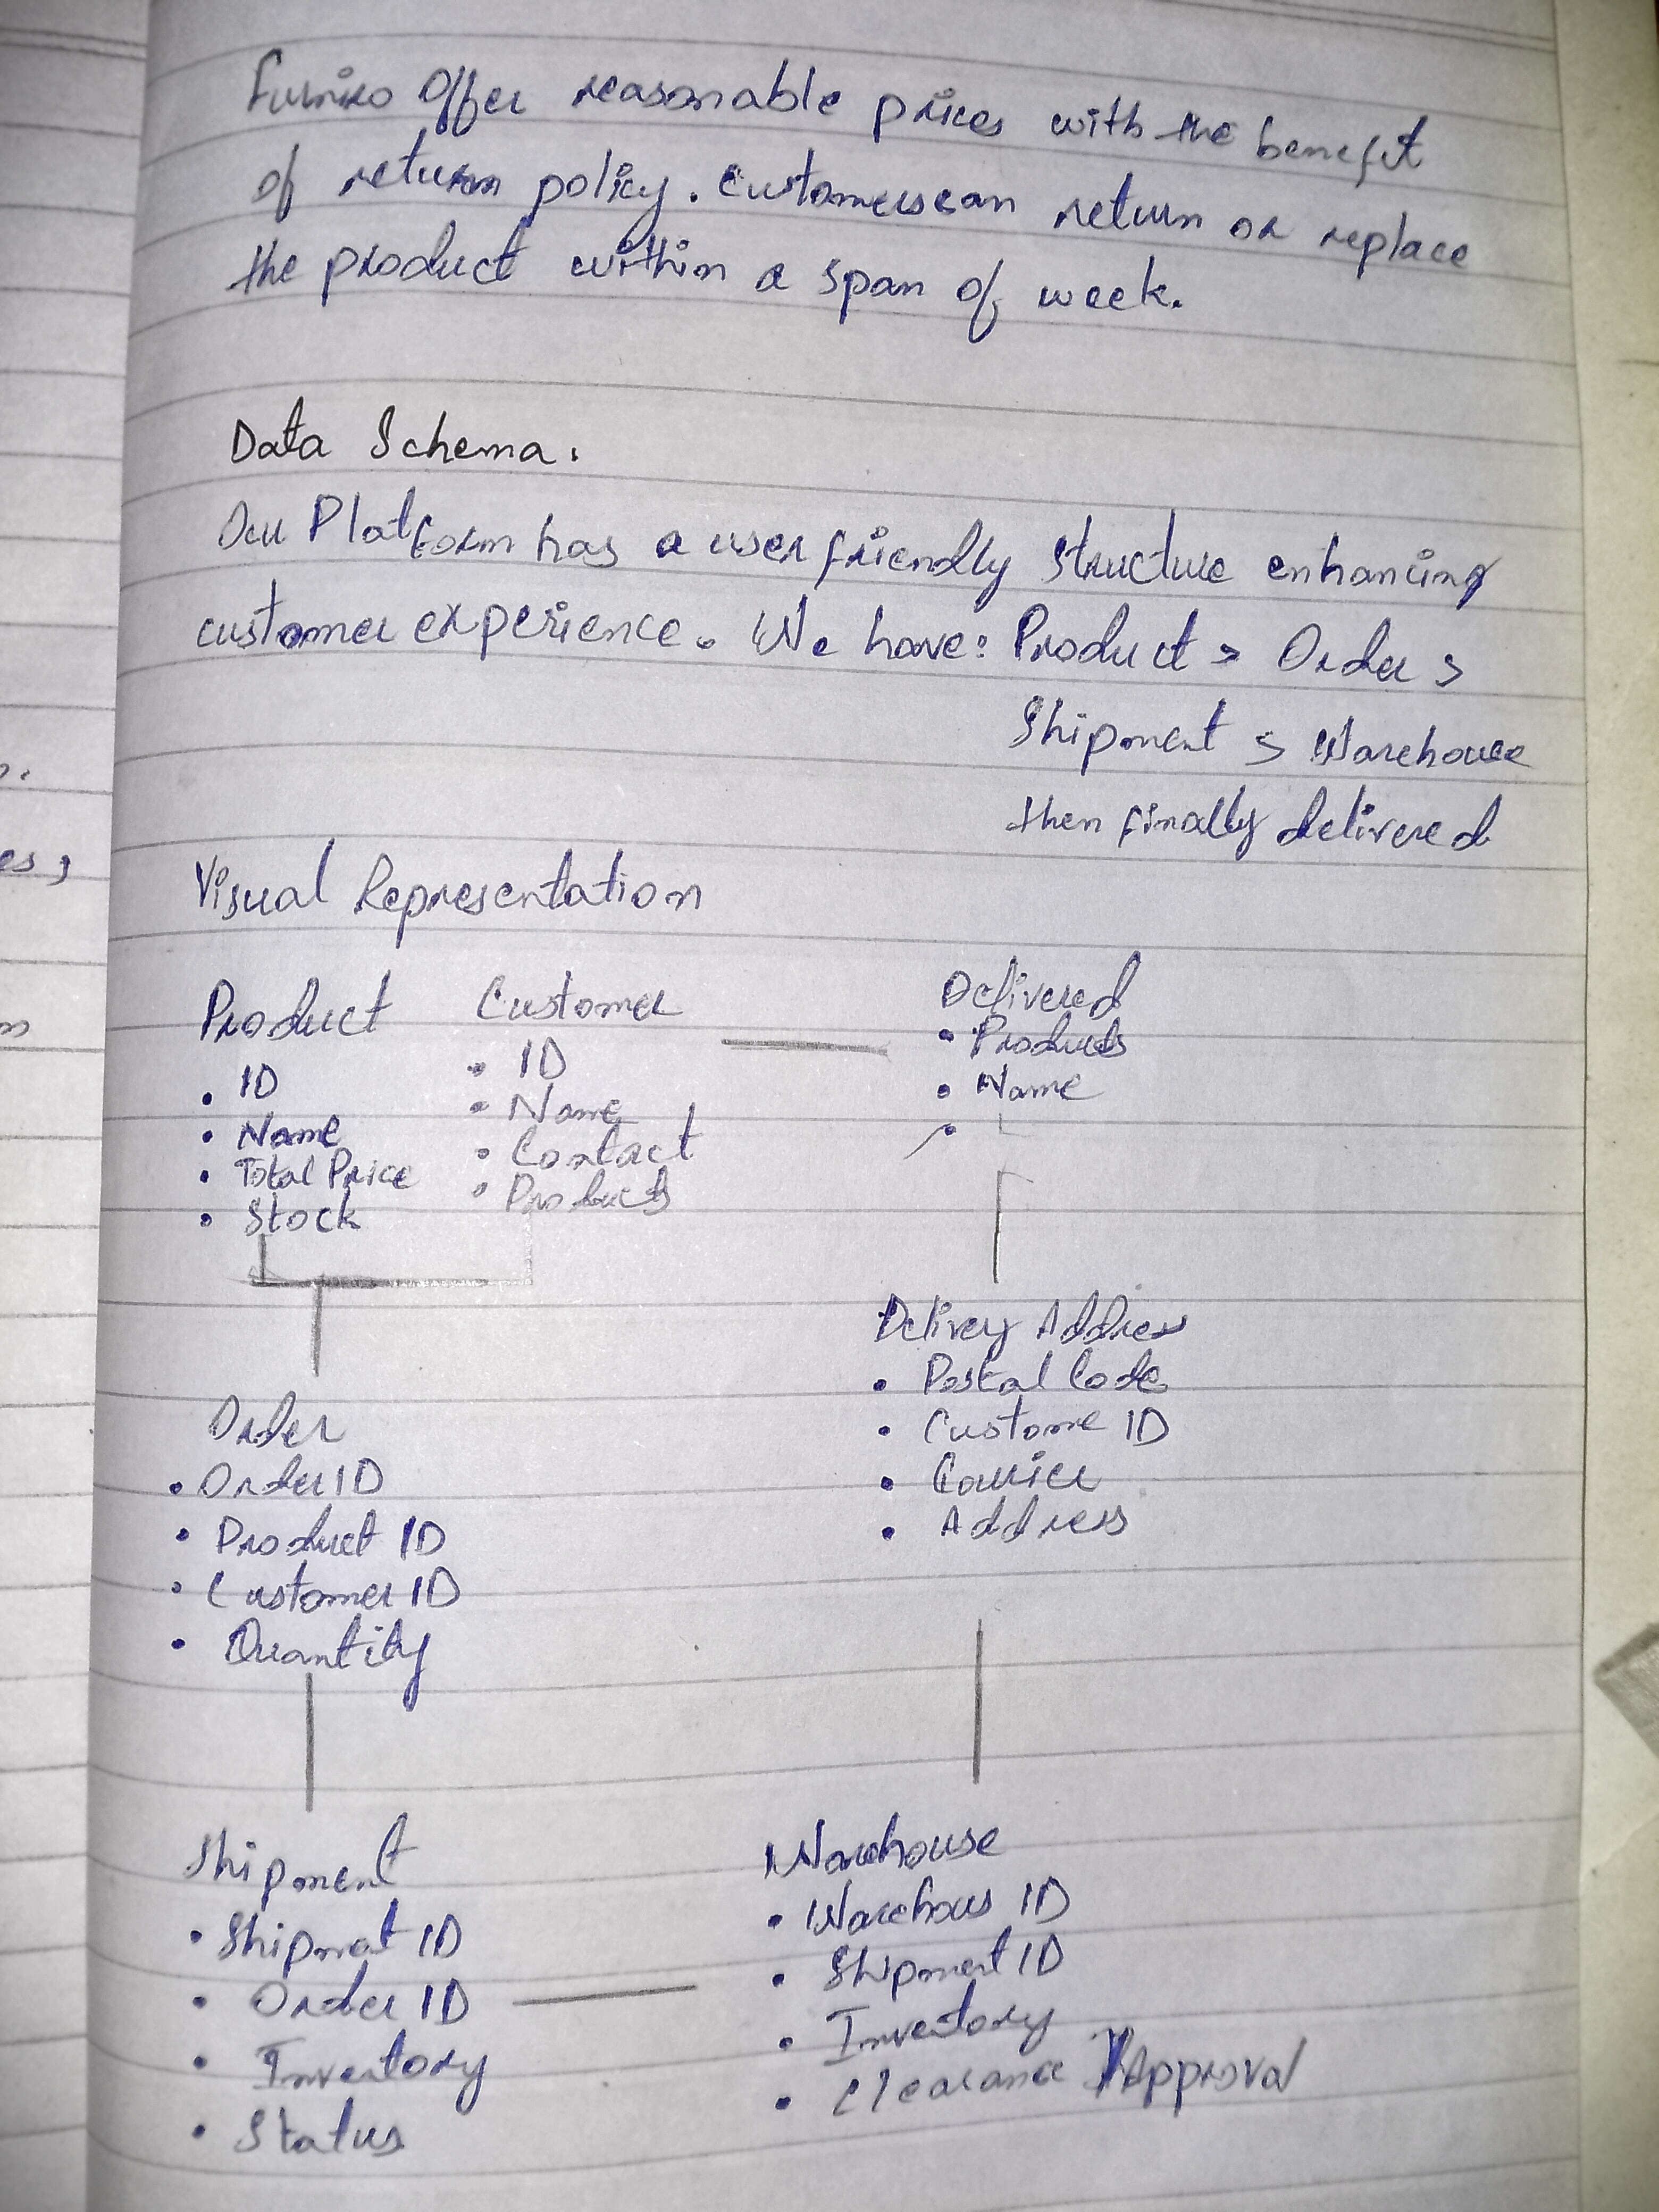 Furniro Offer reasonable prices with the benefit
of return policy. Customers can return or replace
the product within a span of week.
Data Schema.
Our Platform has a user friendly structure enhancing
customer experience. We have: Product > Order >
Shipment > Warehouse
then finally delivered
Visual Representation
Product
• ID
• Name
• Total Price
• Stock
Customer
• ID
• Name
• Contact
• Products
Delivered
• Products
• Name
•
Order
• Order ID
• Product ID
• Customer ID
• Quantity
Delivery Address
• Postal Code
• Custome ID
• Courier
• Address
Shipment
• Shipmat ID
• Order ID
• Inventory
• Status
Warehouse
• Warehous ID
• Shipment ID
• Inventory
• Clearance Approval
es,